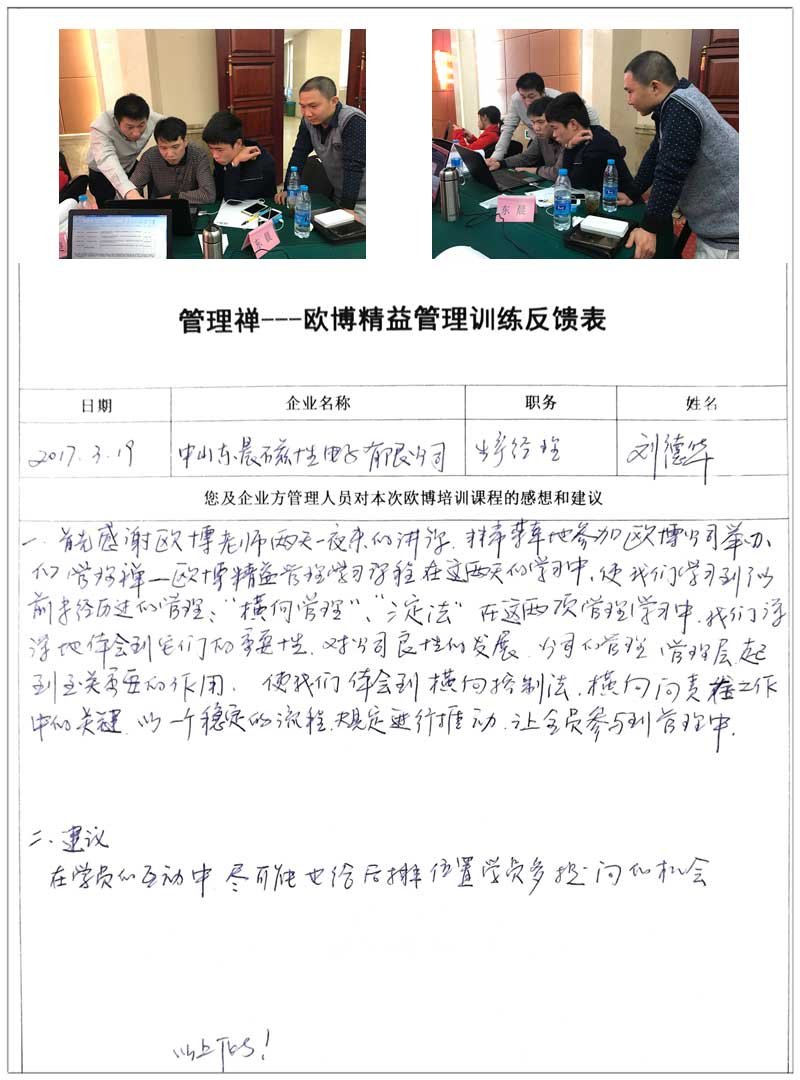 东晨
东晨
管理禅---欧博精益管理训练反馈表
日期 企业名称 职务 姓名
2017.3.19 中山东晨磁性电子有限公司 生产经理 刘德华
您及企业方管理人员对本次欧博培训课程的感想和建议
一、首先感谢欧博老师两天一夜来的讲课、非常荣幸地参加欧博公司举办
的管理禅—欧博精益管理学习课程在这两天的学习中,使我们学习到以
前未经历过的管理:“横向管理”、“三定法”在这两项管理学习中,我们深
深地体会到它们的重要性,对公司良性的发展、公司的管理、管理层、起
到至关重要的作用。使我们体会到横向控制法、横向问责在工作
中的关键,以一个稳定的流程、规定进行推动、让全员参与到管理中.
二、建议
在学员的互动中,尽可能也给后排位置学员多提问的机会
以上